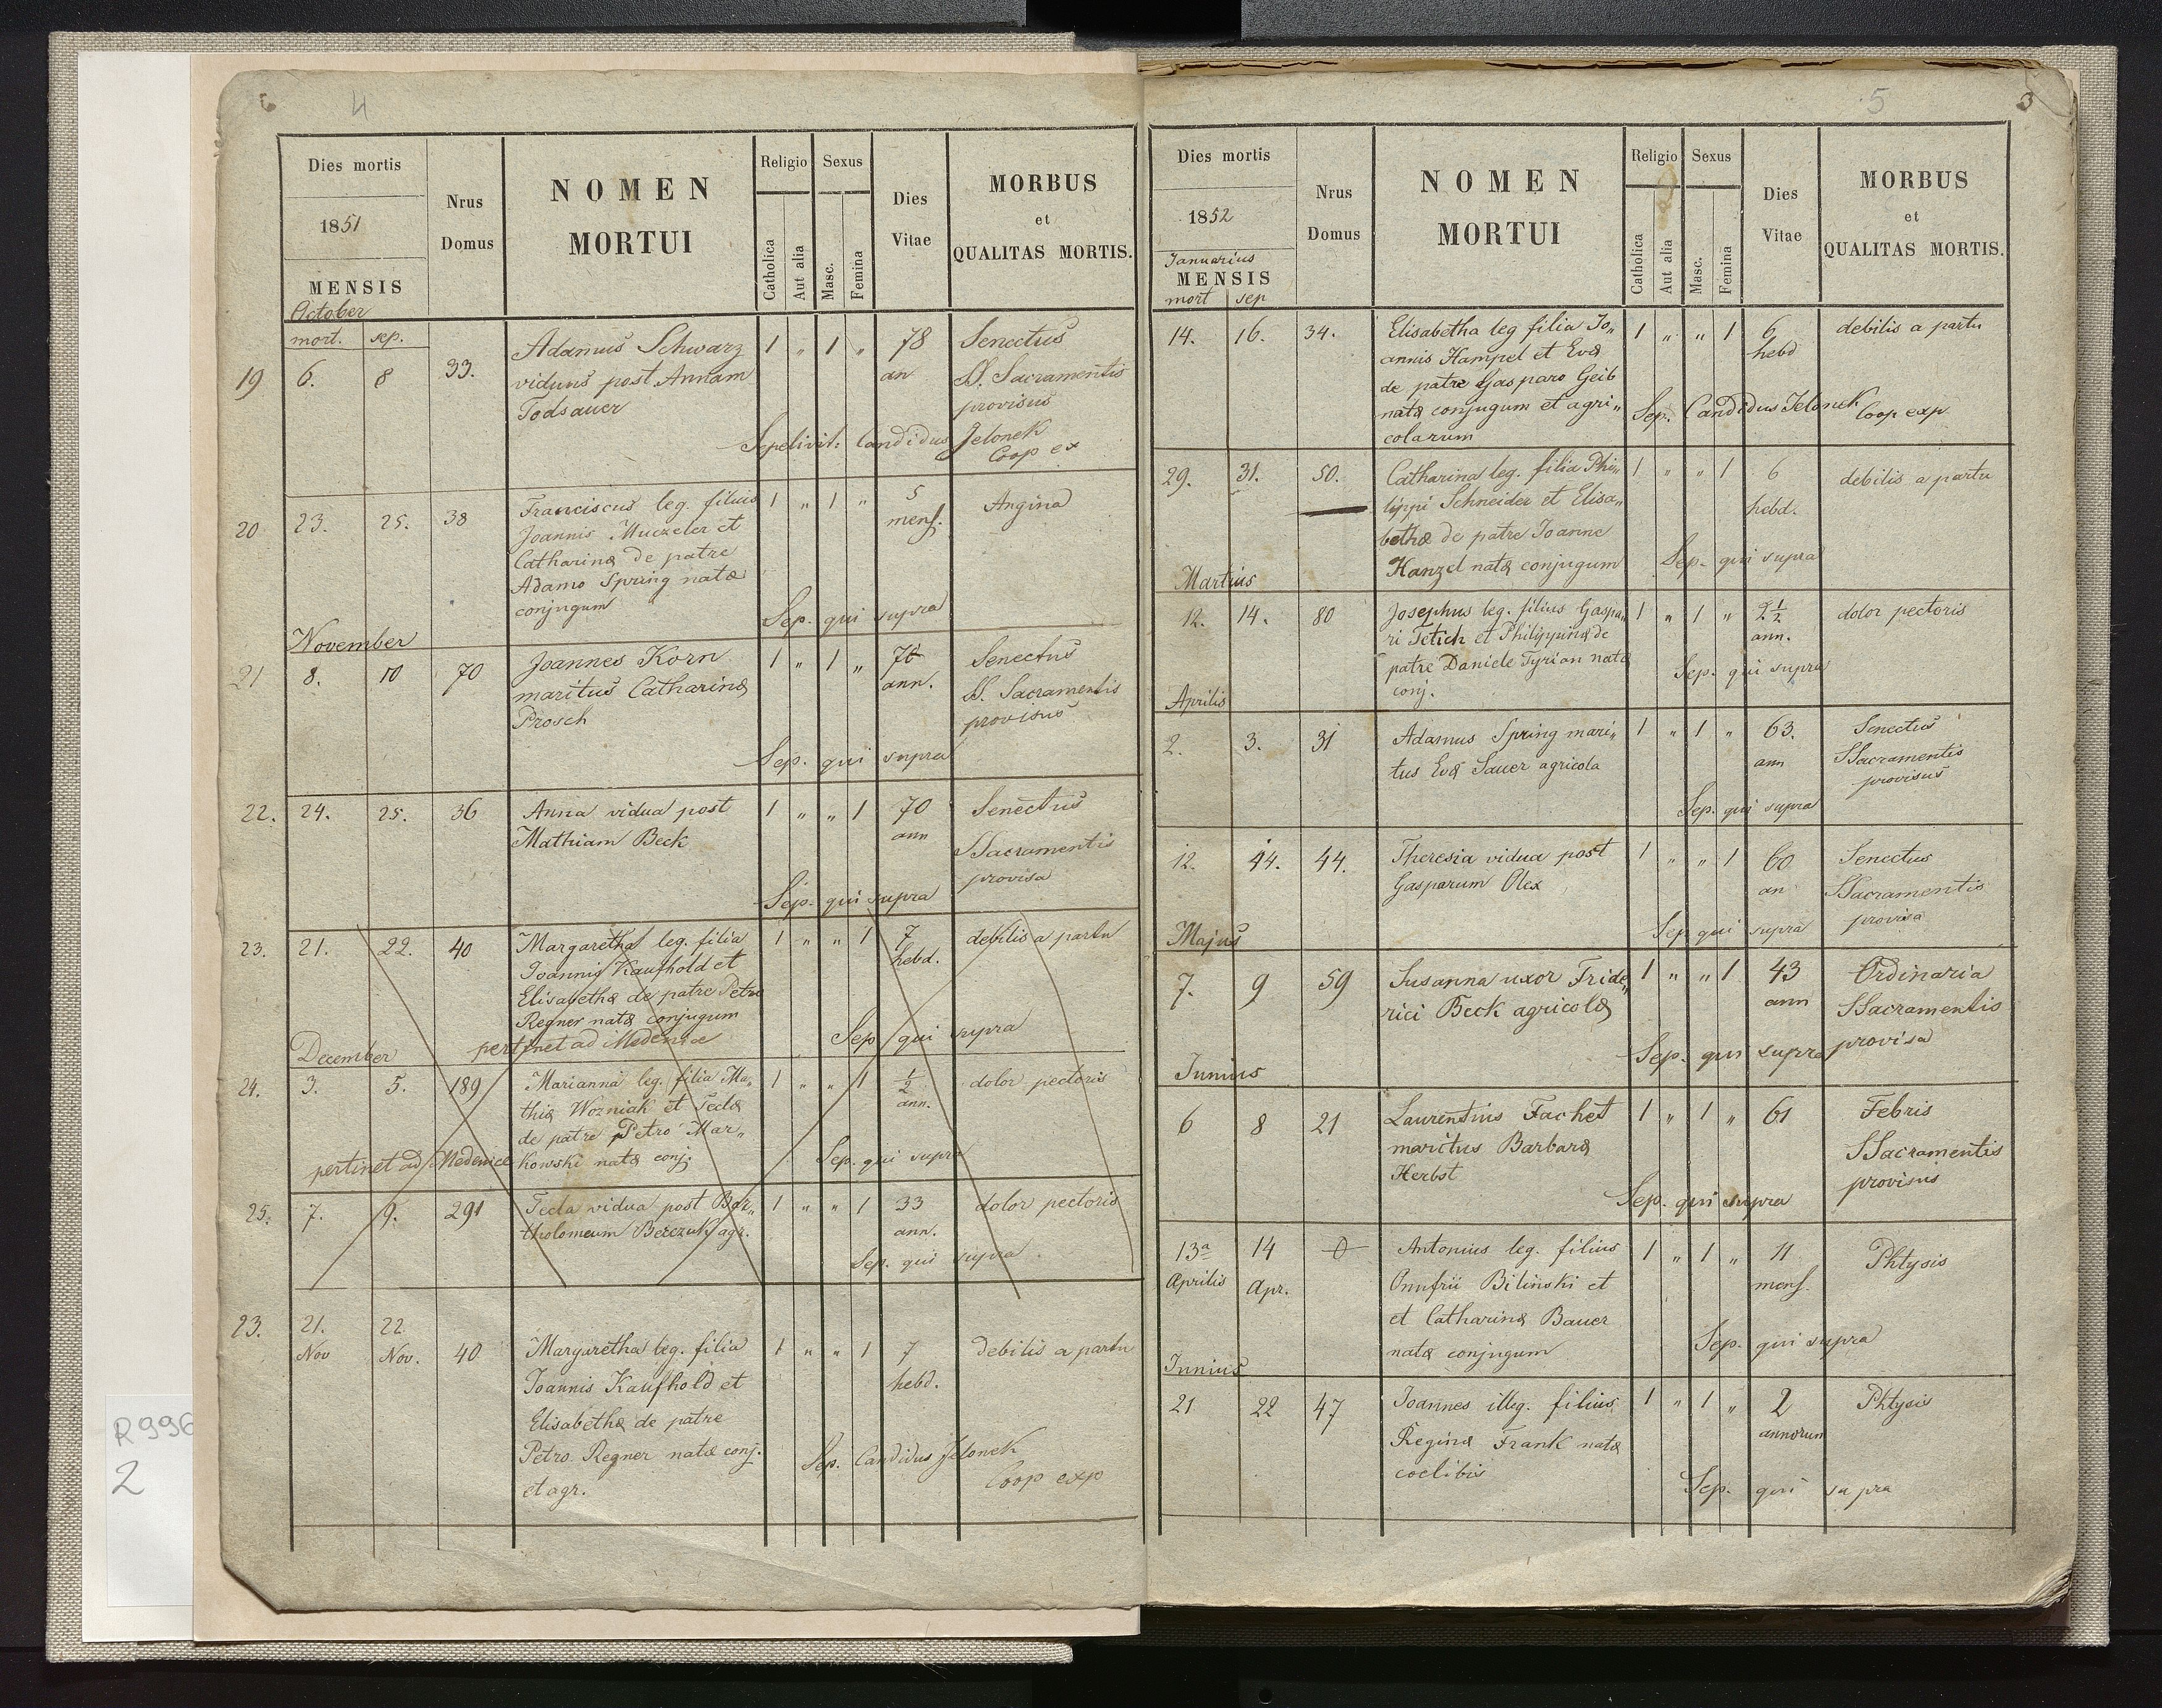 6 4
Dies mortis
1851
MENSIS
October
Nrus
Domus
NOMEN
MORTUI
Religio
Catholica
Aut alia
Sexus
Masc.
Femina
Dies
Vitae
MORBUS
et
QUALITAS MORTIS.
mort. sep.
19 6. 8 33. Adamus Schwarz 1 " 1 " 78 Senectus
viduus post Annam an SS. Sacramentis
Todsauer provisus
Sepelivit: Candidus Jelonek
Coop ex
20 23. 25. 38 Franciscus leg. filius 1 " 1 " 5 Angina
Joannis Muczeler et mens.
Catharinæ de patre
Adamo Spring natæ
conjugum
Sep. qui supra
November
21 8. 10 70 Joannes Korn 1 " 1 " 76 Senectus
maritus Catharinæ ann. SS. Sacramentis
Prosch provisus
Sep. qui supra
22. 24. 25. 36 Anna vidua post 1 " " 1 70 Senectus
Mathiam Beck ann SSacramentis
provisa
Sep. qui supra
23. 21. 22. 40 Margaretha leg. filia 1 " " 1 7 debilis a partu
Joannis Kaufhold et hebd.
Elisabethæ de patre Petro
Regner natæ conjugum
Sep qui supra
pertinet ad Medenice
December
24. 3. 5. 189 Marianna leg. filia Ma„ 1 " " 1 1/2 dolor pectoris
thiæ Wozniak et Teclæ ann.
de patre Petro Mar„
kowski natæ conj.
pertinet ad Medenice Sep. qui supra
25. 7. 9. 291 Tecla vidua post Bar„ 1 " " 1 33 dolor pectoris
tholomeum Berezuk agr. ann.
Sep. qui supra
23. 21. 22
Nov Nov. 40 Margaretha leg. filia 1 " " 1 7 debilis a partu
Joannis Kaufhold et hebd.
Elisabethæ de patre
Petro Regner natæ conj.
et agr.
Sep. Candidus Jelonek
Coop exp
R996
2
5 3
Dies mortis
1852
Januarius
MENSIS
mort sep
Nrus
Domus
NOMEN
MORTUI
Religio
Catholica
Aut alia
Sexus
Masc.
Femina
Dies
Vitae
MORBUS
et
QUALITAS MORTIS.
14. 16. 34. Elisabetha leg filia Jo„ 1 " " 1 6 debilis a partu
annis Hampel et Evæ hebd
de patre Gasparo Geib
natæ conjugum et agri„
colarum
Sep. Candidus Jelonek Coop exp
29. 31. 50. Catharina leg. filia Phi„ 1 " " 1 6 debilis a partu
lippi Schneider et Elisa„ hebd.
bethæ de patre Joanne
Hanzel natæ conjugum
Sep. qui supra
Martius
12. 14. 80 Josephus leg. filius Gaspa„ 1 " 1 " 2 1/2 dolor pectoris
ri Tetich et Philippinæ de ann.
patre Daniele Tyrian natæ
conj.
Sep. qui supra
Aprilis
2. 3. 31 Adamus Spring mari„ 1 " 1 " 63. Senectus
tus Evæ Sauer agricola ann SSacramentis
provisus
Sep. qui supra
12. 14. 44. Theresia vidua post 1 " " 1 60 Senectus
Gasparum Olex an SSacramentis
provisa
Sep qui supra
Majus
7. 9 59 Susanna uxor Fride„ 1 " " 1 43 Ordinaria
rici Beck agricolæ ann SSacramentis
provisa
Sep. qui supra
Junius
6 8 21 Laurentius Fachet 1 " 1 " 61 Febris
maritus Barbaræ SSacramentis
Herbst provisus
Sep. qui supra
13a 14 0 Antonius leg. filius 1 " 1 " 11 Phtysis
Aprilis Apr. Onufrii Bilinski et mens.
et Catharinæ Bauer
natæ conjugum
Sep. qui supra
Junius
21 22 47 Joannes illeg. filius 1 " 1 " 2 Phtysis
Reginæ Frank natæ annorum
coelibis
Sep. qui supra